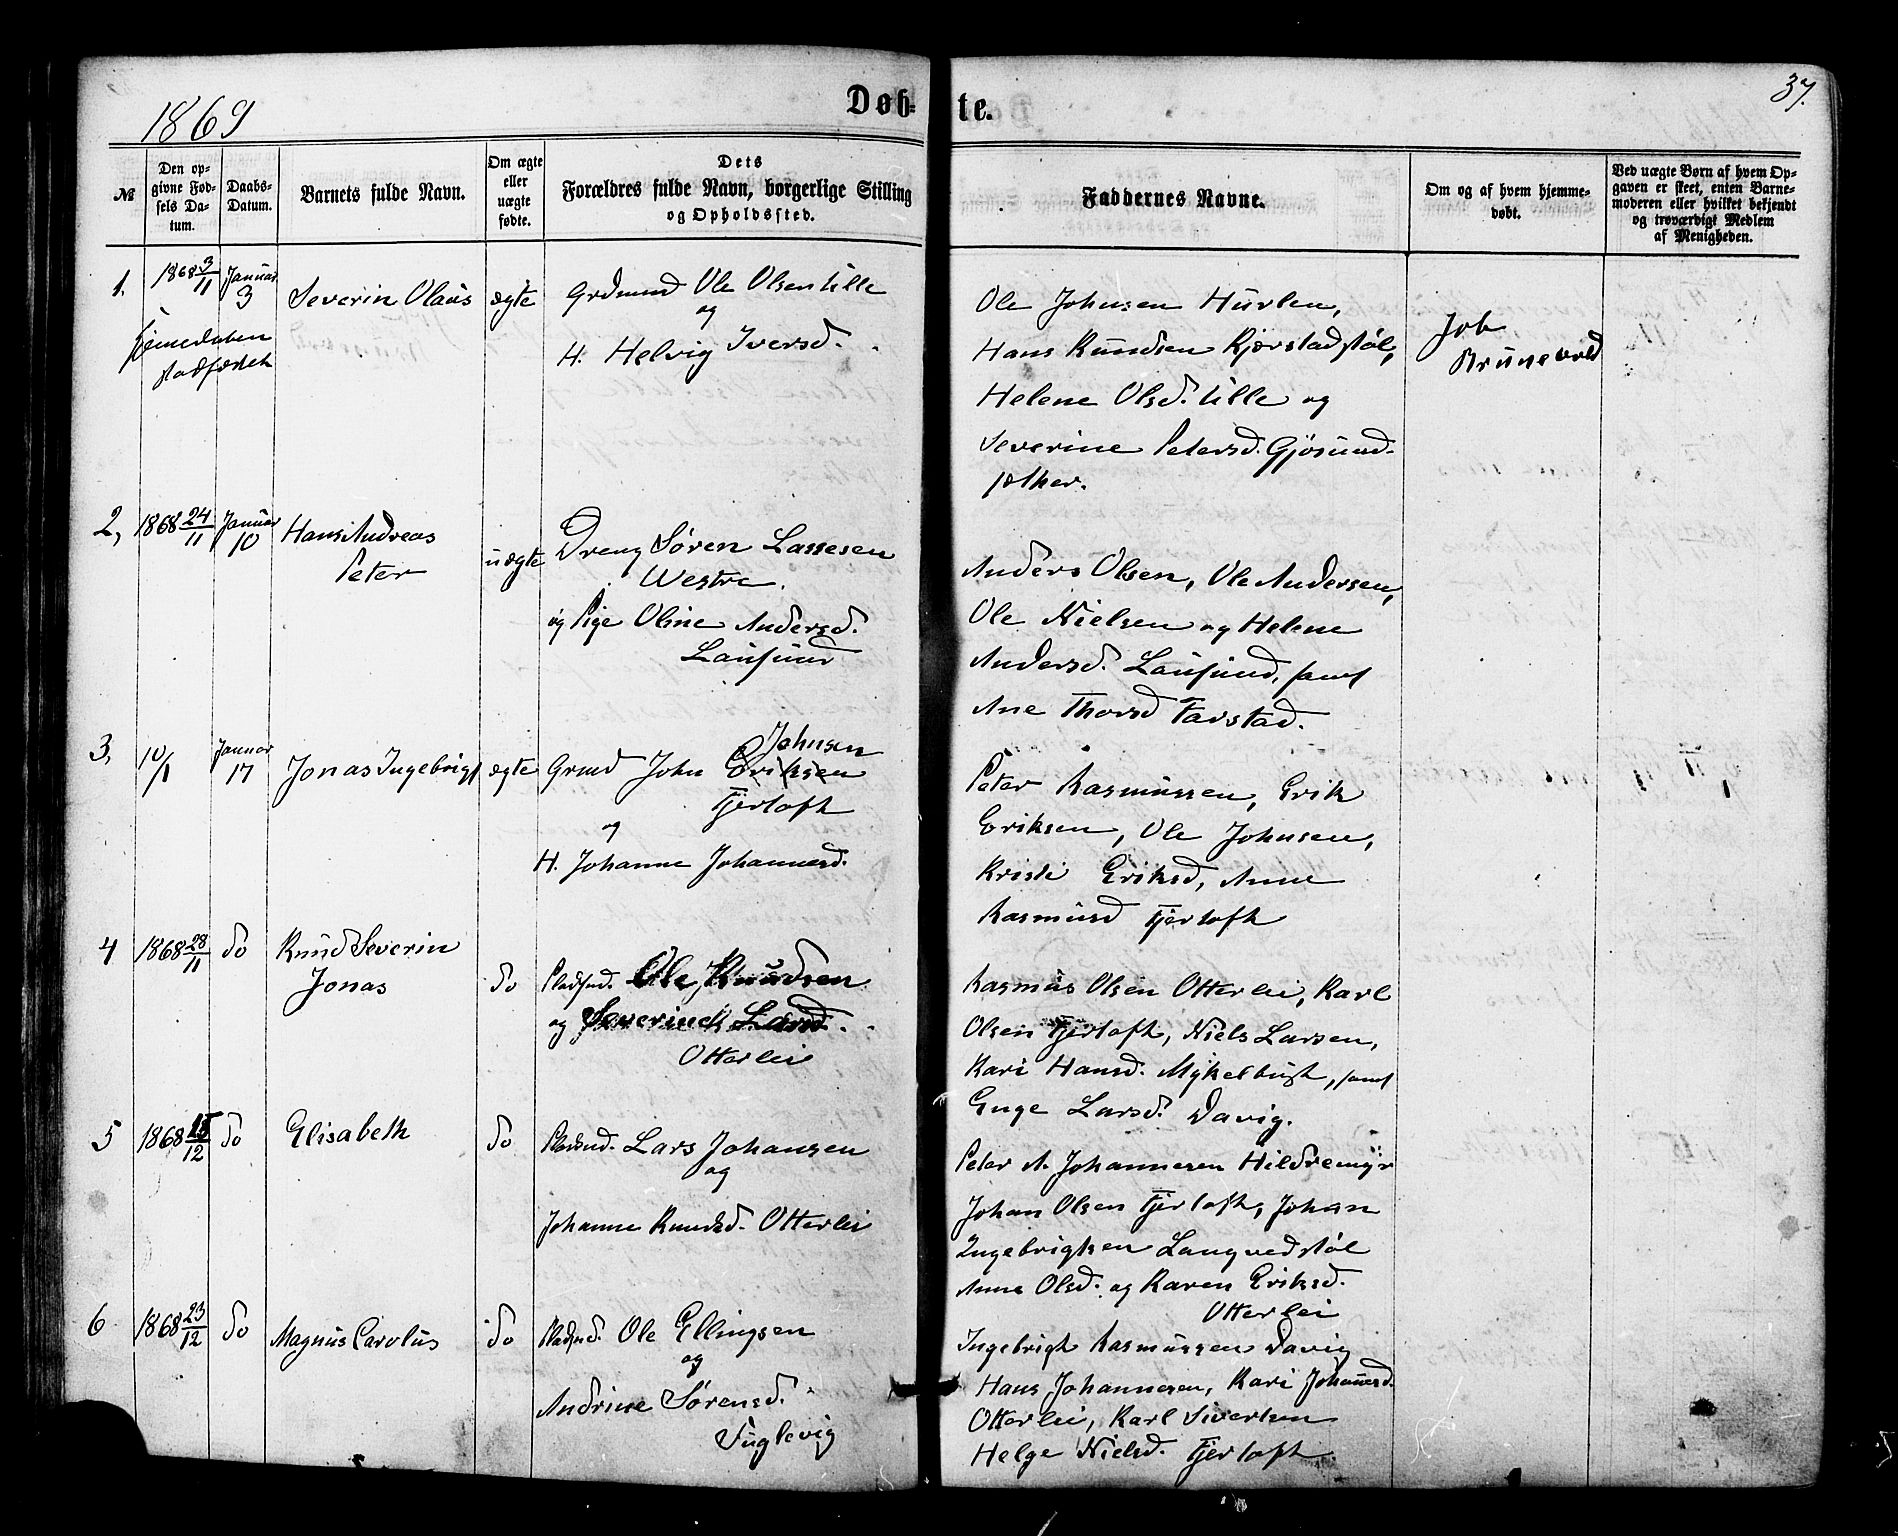 1869
Døb-
te.
37.
№
Den op-
givne Fød-
sels Da-
tum.
Daabs-
Datum.
Barnets fulde Navn.
Om ægte
eller
uægte
fødte.
Dets
Forældres fulde Navn, borgerlige Stilling
og Opholdssted.
Faddernes Navne.
Om og af hvem hjemme-
døbt.
Ved uægte Børn af hvem Op-
gaven er skeet, enten Barne-
moderen eller hvilket bekjendt
og troværdigt Medlem
af Menigheden.
1.
1868 3/11
Januar
3
Severin Olaus
ægte
Grdmand Ole Olsen Ulle
og
H. Helvig Iversd.
Hjemedaaben
stadfæstet
Ole Johnsen Hurlen,
Hans Knudsen Kjærstadstøl,
Helene Olsd. Ulle og
Severine Petersd. Gjøsund-
sæther.
Job
Brunevold
2,
1868 24/11
Januar
10
Hans Andreas
Peter
uægte
Dreng Søren Lassesen
Westre.
og Pige Oline Andersd.
Lausund
Anders Olsen, Ole Andersen,
Ole Nielsen og Helene
Andersd. Lausund, samt
Ane Thorsd Farstad.
3,
10/1
Januar
17
Jonas Ingebrigt
ægte
Johnsen
Grmd John Eriksen
Fjertoft
og
H. Johanne Johannesd.
Peter Rasmussen, Erik
Eriksen, Ole Johnsen,
Kristi Eriksd, Anne
Rasmusd Fjertoft
4
1868 28/11
do
Knud Severin
Jonas
do
Pladsmd. Ole Knudsen
og Severine Larsd.
Otterlei
Rasmus Olsen Otterlei, Karl
Olsen Fjertoft, Niels Larsen,
Kari Hansd. Myklebust, samt
Enge Larsd. Davig.
5
1868 15/12
do
Elisabeth
do
Pladsmd. Lars Johansen
og
Johanne Knudsd. Otterlei
Peter A. Johannesen Hildremyr
Johan Olsen Fjertoft, Johan
Ingebrigtsen Langvedstøl
Anne Olsd. og Karen Eriksd.
Otterlei
6
1868 23/12
do
Magnus Carolus
do
Pladsmd. Ole Ellingsen
og
Andrine Sørensd.
Fuglevig
Ingebrigt Rasmussen Davig
Hans Johannesen, Kari Johannesd.
Otterlei, Karl Sivertsen
Helge Nielsd. Fjertoft.